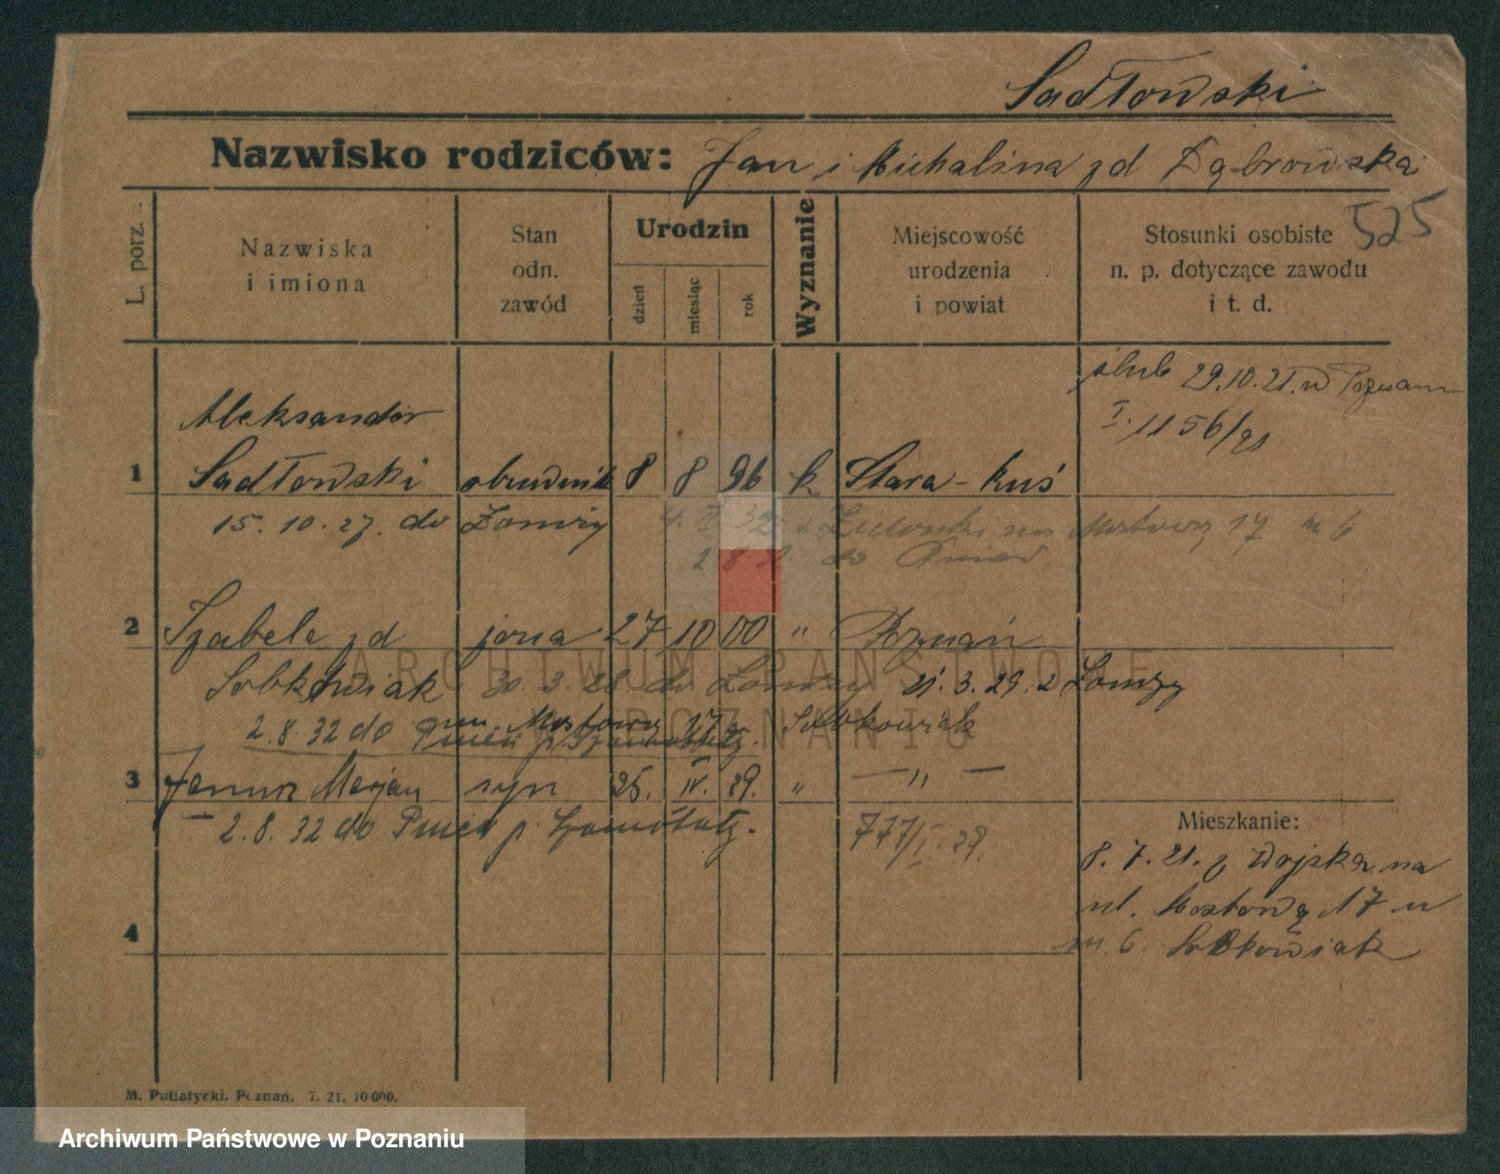 Sadłowski
Nazwisko rodziców: Jan i Michalina zd Dąbrowska
525
L. porz.
Nazwiska
i imiona
Stan
odn.
zawód
Urodzin
dzień
miesiąc
rok
Wyznanie
Miejscowość
urodzenia
i powiat
Stosunki osobiste
n. p. dotyczące zawodu
i t. d.
ślub 29.10.21. w Poznaniu
I. 1156/21
Aleksander
1 Sadłowski 8 8 96 k Stara-Ruś
15. 10. 27. do Łomży
4. 32 z na Mostową 17 m 6
2.8. do
2 Izabela zd żona 27 10 00 " Poznań
Sobkowiak 30. 3. 28 do Łomży 21. 3. 29. z Łomży
2.8.32 do Mostowa 17 Sobkowiak
3 Janusz Marjan syn 25. IV. 29. " — " —
2.8.32 do p.
777/I. 29.
Mieszkanie:
8. 7. 21. z Wojska na
ul. Mostową 17 u
m. 6. Sobkowiak
4
M. Putiatycki. Poznań. 7. 21. 10 000.
ARCHIWUM PAŃSTWOWE
W POZNANIU
Archiwum Państwowe w Poznaniu